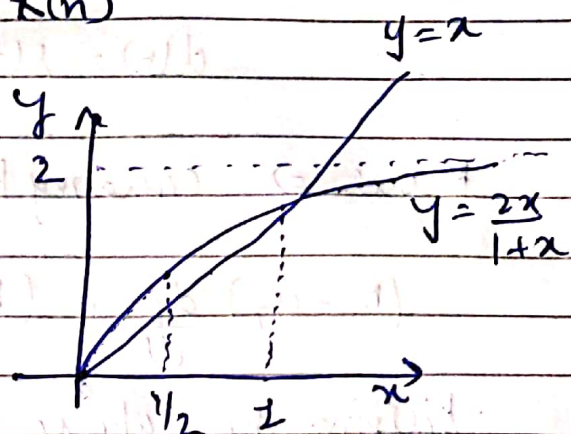 x(n)
y = x
y
2
y = 2x/1+x
1/2
1
x